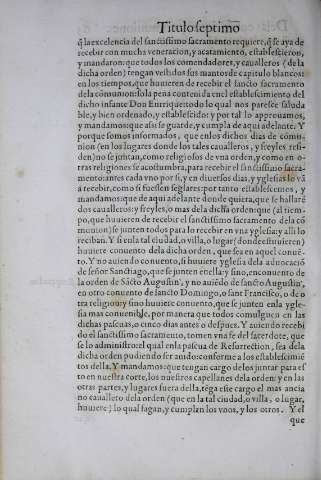 Titulo septimo
q̃ la excelencia del sanctissimo sacramento requiere, q̃ se aya de
recebir con mucha veneracion, y acatamiento, establescieron,
y mandaron: que todos los comendadores, y caualleros (dela
dicha orden) tengan vestidos sus mantos de capitulo blancos:
en los tiempos, que huuieren de recebir el sancto sacramento
dela comunion so la pena contenida enel establescimiento del
dicho infante Don Enrrique: todo lo qual nos paresce saluda
ble, y bien ordenado, y establescido: y por tal lo approuamos,
y mandamos: que assi se guarde, y cumpla de aqui adelante. Y
porque somos informados, que enlos dichos dias de comu-
nion (en los lugares donde los tales caualleros, y freyles resi-
den) no se juntan, como religiosos de vna orden, y como en o-
tras religiones se acostumbra, para recebir el sanctissimo sacra-
mento: antes cada vno por si, y en diuersos dias, y yglesias lo vã
a recebir, como si fuessen seglares: por tanto establescemos, y
mandamos: que de aqui adelante donde quiera, que se hallarẽ
dos caualleros: y freyles, o mas dela dicha orden: que (al tiem-
po, que huuieren de recebir el sanctissimo sacramento dela co
munion) se junten todos para lo recebir en vna yglesia: y alli lo
reciban. Y si enla tal ciudad, o villa, o lugar (donde estuuieren)
huuiere conuento dela dicha orden, que sea en aquel conuē-
to. Y no auiendo conuento, si huuiere yglesia dela aduocaciō
de señor Sanctiago, que se junten enella: y sino, en conuento de
la orden de Sãcto Augustin, y no auiẽdo de sancto Augustin,
en otro conuento de sancto Domingo, o sant Francisco, o de o
tra religion: y sino huuiere conuento, que se junten enla ygle-
sia mas conuenible, por manera que todos comulguen en las
dichas pascuas, o cinco dias antes o despues. Y auiendo recebi
do el sanctissimo sacramento, tomen vna fe del sacerdote, que
se lo administro: el qual enla pascua de Resurrection, sea dela
dicha orden pudiendo ser auido: conforme a los establescimiē
tos della. Y mandamos: que tengan cargo delos juntar para es
to en nuestra corte, los nuestros capellanes dela orden: y en las
otras partes, y lugares fuera della, tẽga este cargo el mas ancia
no cauallero dela orden (que en la tal ciudad, o villa, o lugar,
huuiere) lo qual hagan, y cumplan los vnos, y los otros. Y el
que